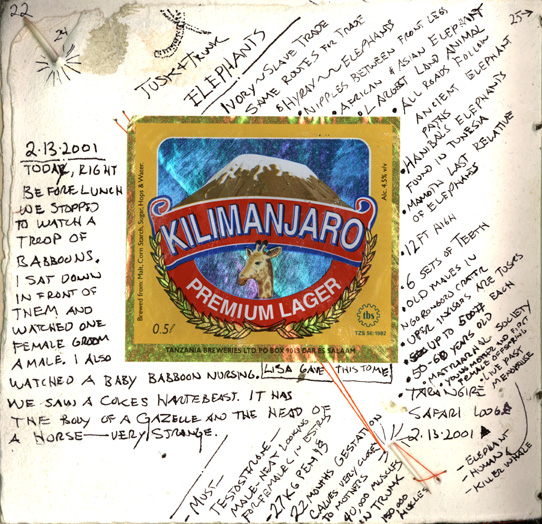 22
24
25→
TUSK & TRUNK
ELEPHANTS
IVORY ~ SLAVE TRADE
SAME ROUTES FOR TRADE
• HYRAX ~~ ELEPHANTS
• NIPPLES BETWEEN FRONT LEGS
• AFRICAN & ASIAN ELEPHANT
• LARGEST LAND ANIMAL
• ALL ROADS FOLLOW
ANCIENT ELEPHANT
PATHS
• HANIBALS ELEPHANTS
FOUND IN TUNESIA
• MAMOTH LAST RELATIVE
OF ELEPHANTS
• 12 FT HIGH
• 6 SETS OF TEETH
• OLD MALES IN
NGORONGORO CRATER
• UPER INCISORS ARE TUSKS
UP TO 500 LB EACH
• 50-60 YEARS OLD
• MATRIARCHAL SOCIETY
TARANGIRE
SAFARI LODGE
2.13.2001
- ELEPHANT
- HUMAN &
- KILLER WHALE
2.13.2001
TODAY, RIGHT
BEFORE LUNCH
WE STOPPED
TO WATCH A
TROOP OF
BABBOONS.
I SAT DOWN
IN FRONT OF
THEM AND
WATCHED ONE
FEMALE GROOM
A MALE. I ALSO
WATCHED A BABY BABBOON NURSING.
WE SAW A COKES HARTEBEAST. IT HAS
THE BODY OF A GAZELLE AND THE HEAD OF
A HORSE — VERY STRANGE.
LISA GAVE THIS TO ME
Brewed from: Malt, Corn Starch, Sugar, Hops & Water.
Alc. 4.5% v/v
KILIMANJARO
PREMIUM LAGER
0.5l
tbs
TZS 90:1982
TANZANIA BREWERIES LTD PO BOX 9013 DAR ES SALAAM
- MUST -
TESTOSTERONE
MALE-HEAT LOOKING
FOR FEMALE IN ESTRUS
- 27 KG PENIS
- 22 MONTHS GESTATION
CALVES VERY CLOSE
TO MOTHERS
40,000 MUSCLES
IN TRUNK
150,000
MUSCLES